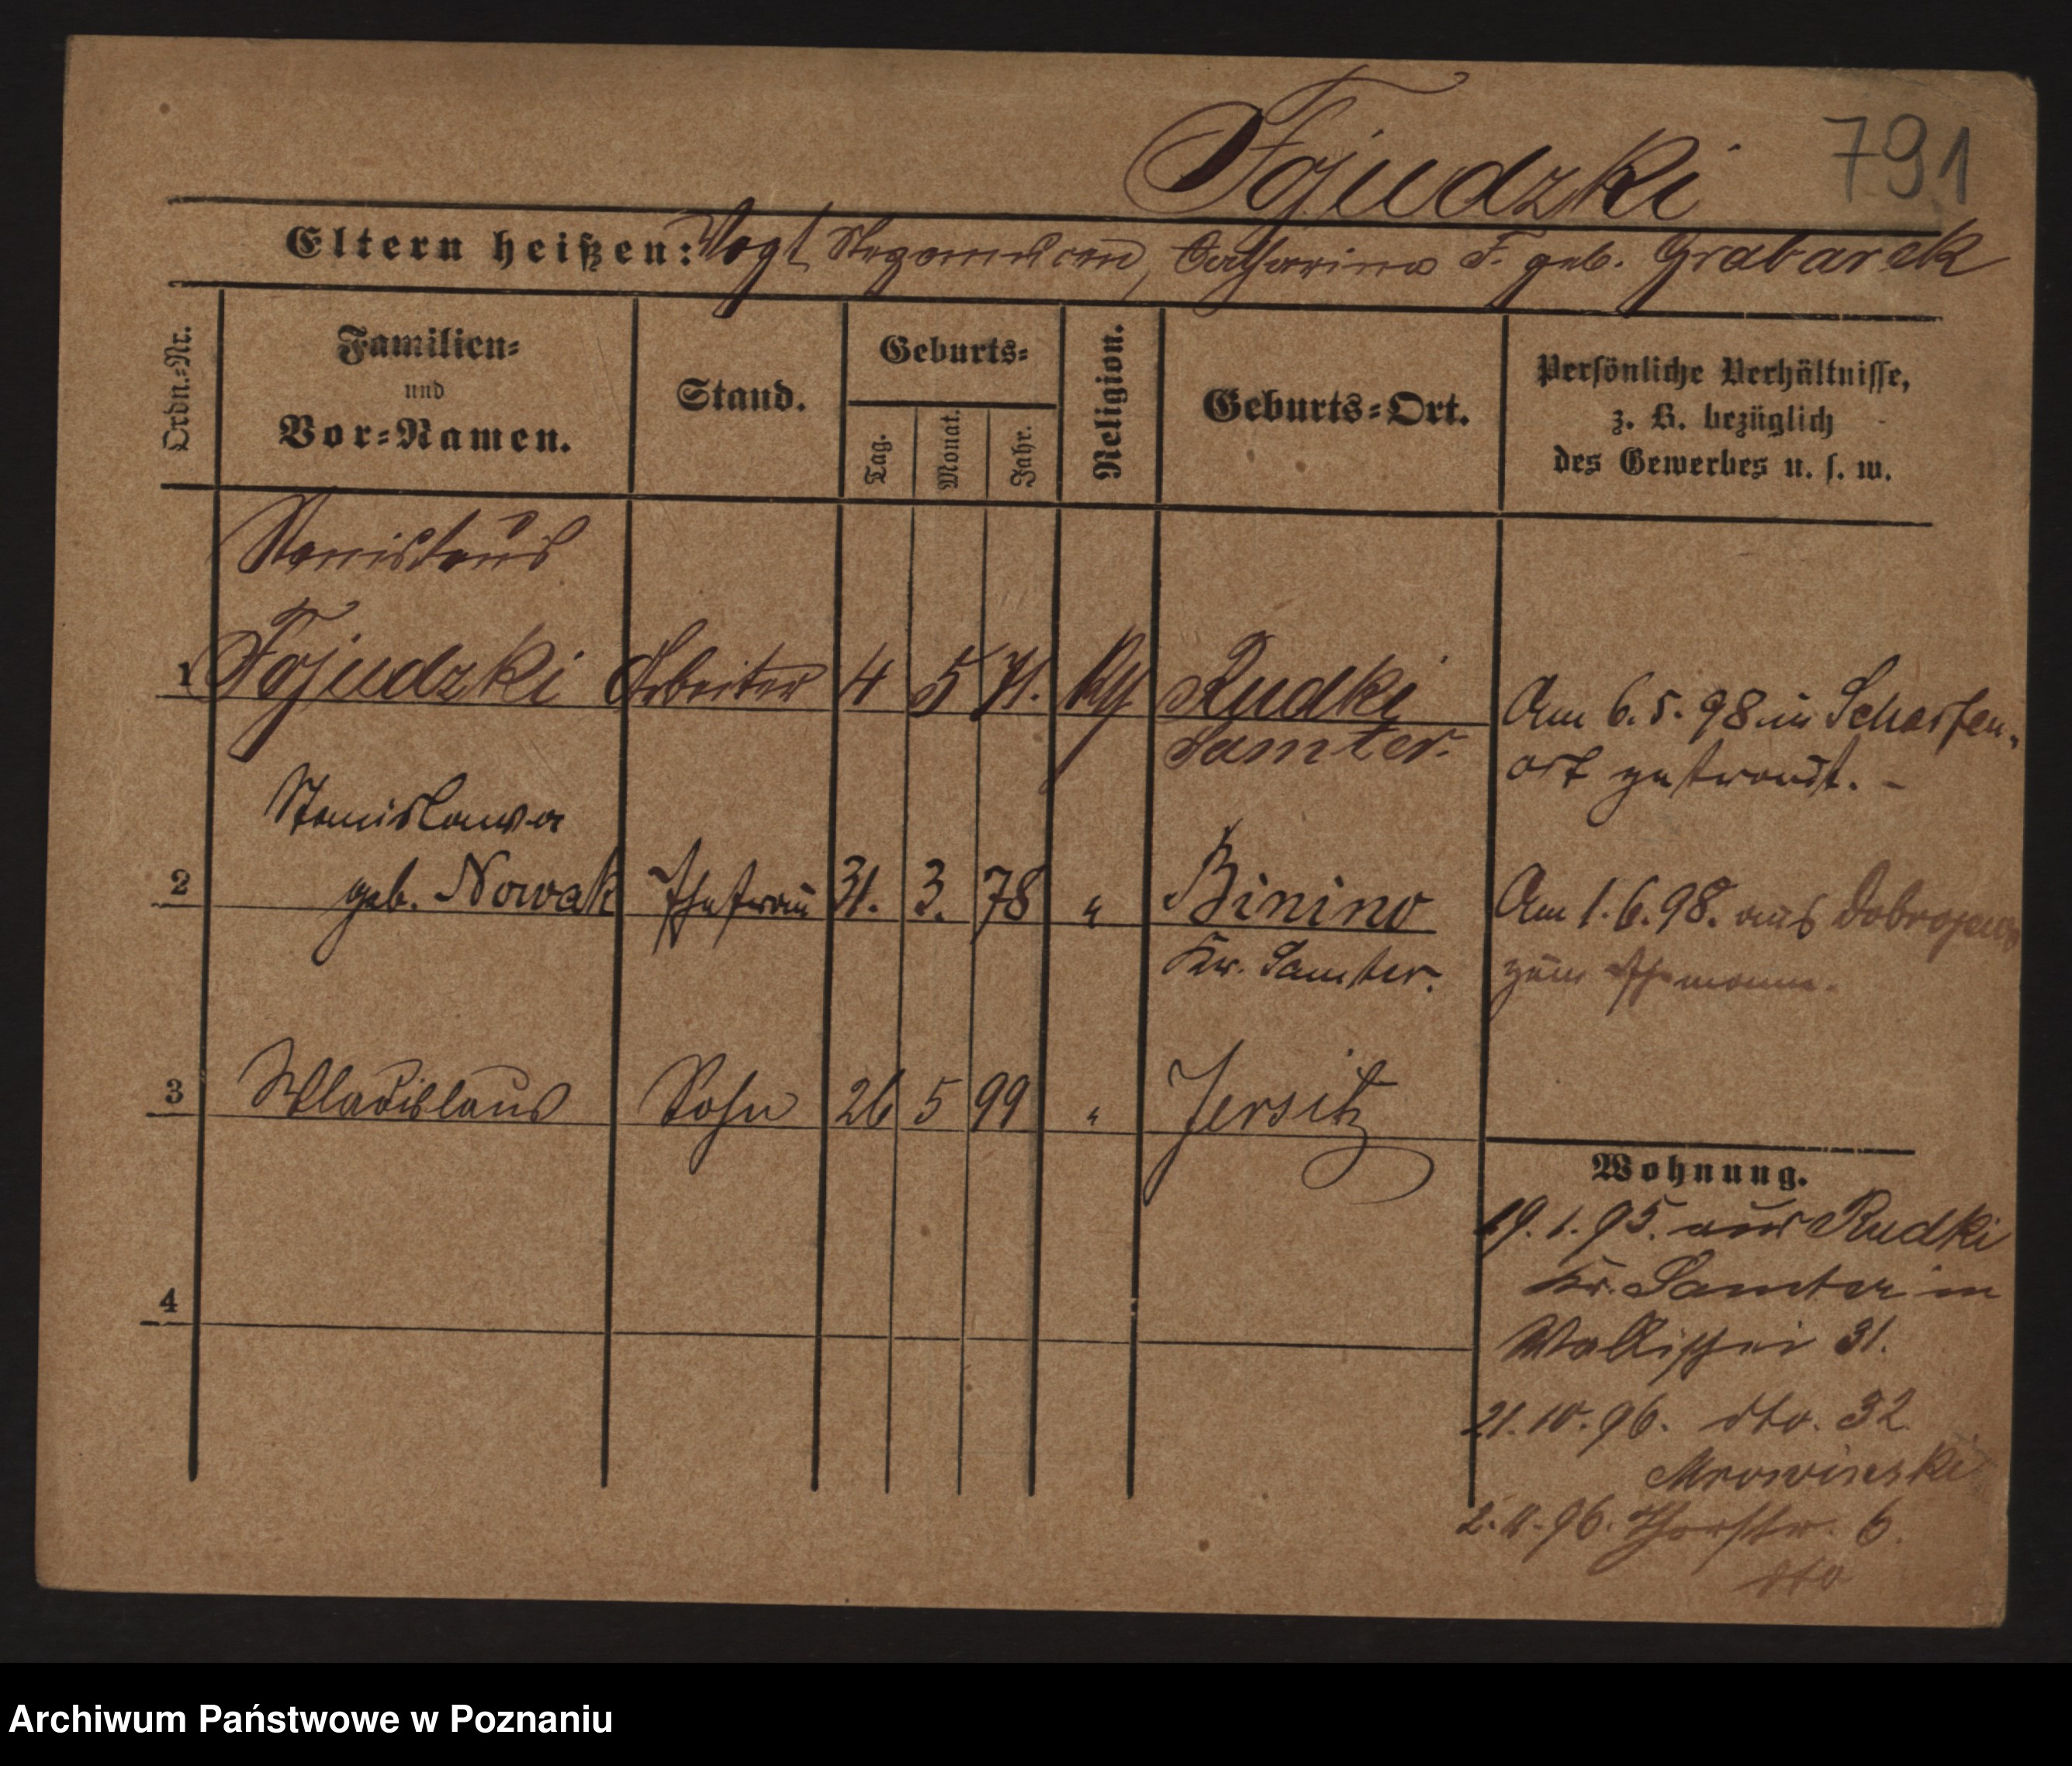 Fojudzki
791
Eltern heißen: Vogt Catharina F. geb. Grabarek
Ordn.-Nr.
Familien- und Vor-Namen.
Stand.
Geburts-
Tag.
Monat.
Jahr.
Religion.
Geburts-Ort.
Persönliche Verhältnisse,
z. B. bezüglich
des Gewerbes u. s. w.
Stanislaus
1 Fojudzki Arbeiter 4 5 71. Rudki
Samter.
Am 6.5.98 in Scharfen-
ort getraut. -
Stanislawa
2 geb. Nowak Ehefrau 31. 3. 78 " Binino
Kr. Samter.
Am 1.6.98. aus Dobrojewo
zum Ehemann.
3 Wladislaus Sohn 26 5 99 " Jersitz
4
Wohnung.
19.1.95. aus Rudki
Kr. Samter in
Wallischei 31.
21.10.96. dto. 32
Mrowinski
2.11.96. Thorstr. 6
dto
Archiwum Państwowe w Poznaniu